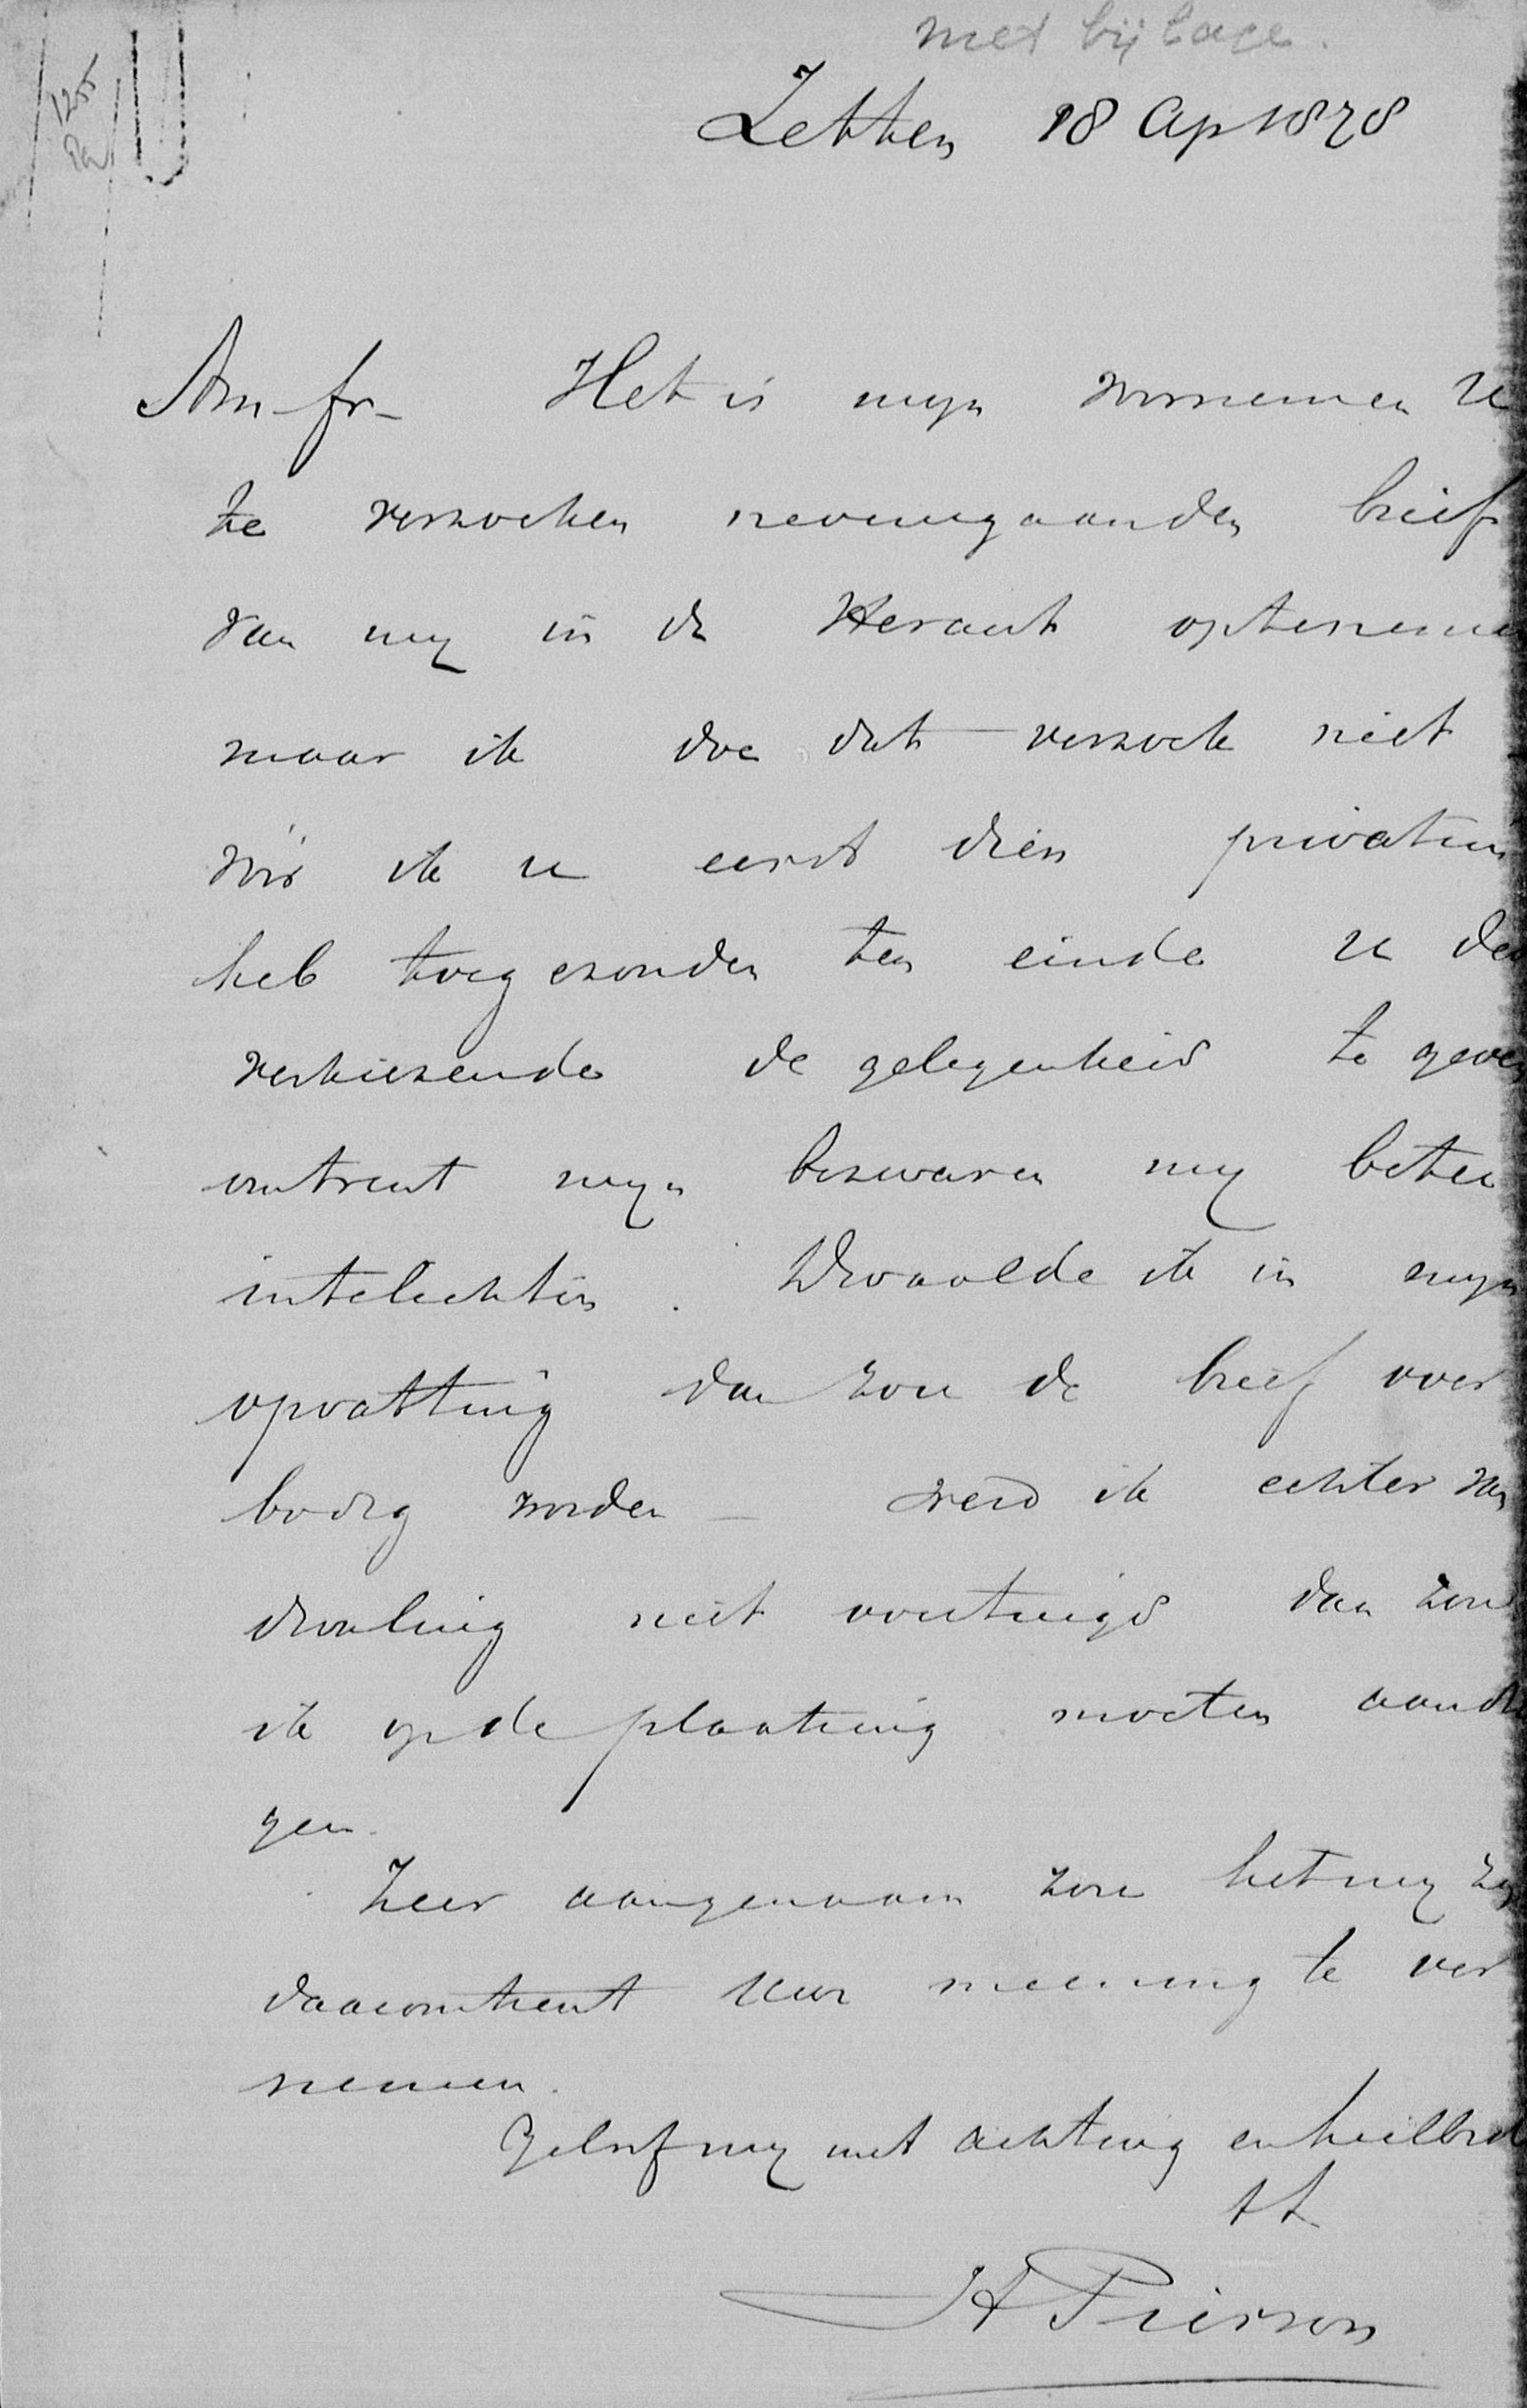 met bijlage.
1255
Zetten 18 Ap 1878
Am. fr - Het is mijn voornemen U
te verzoeken nevensgaanden brief
van mij in de Heraut optenemen
maar ik doe dat verzoek niet
vóór ik u eerst dien privatim
heb toegezonden ten einde u des
verkiezende de gelegenheid te geven
omtrent mijn bezwaren mij beter
intelichten. Dwaalde ik in mijn
opvatting dan zou de brief over
bodig worden - werd ik echter van
dwaling niet overtuigd dan zou
ik op de plaatsing moeten aandrin
gen.
Zeer aangenaam zou het mij zijn
daaromtrent Uwe meening te ver
nemen.
Geloof mij met achting en heilbede
tt
H Pierson